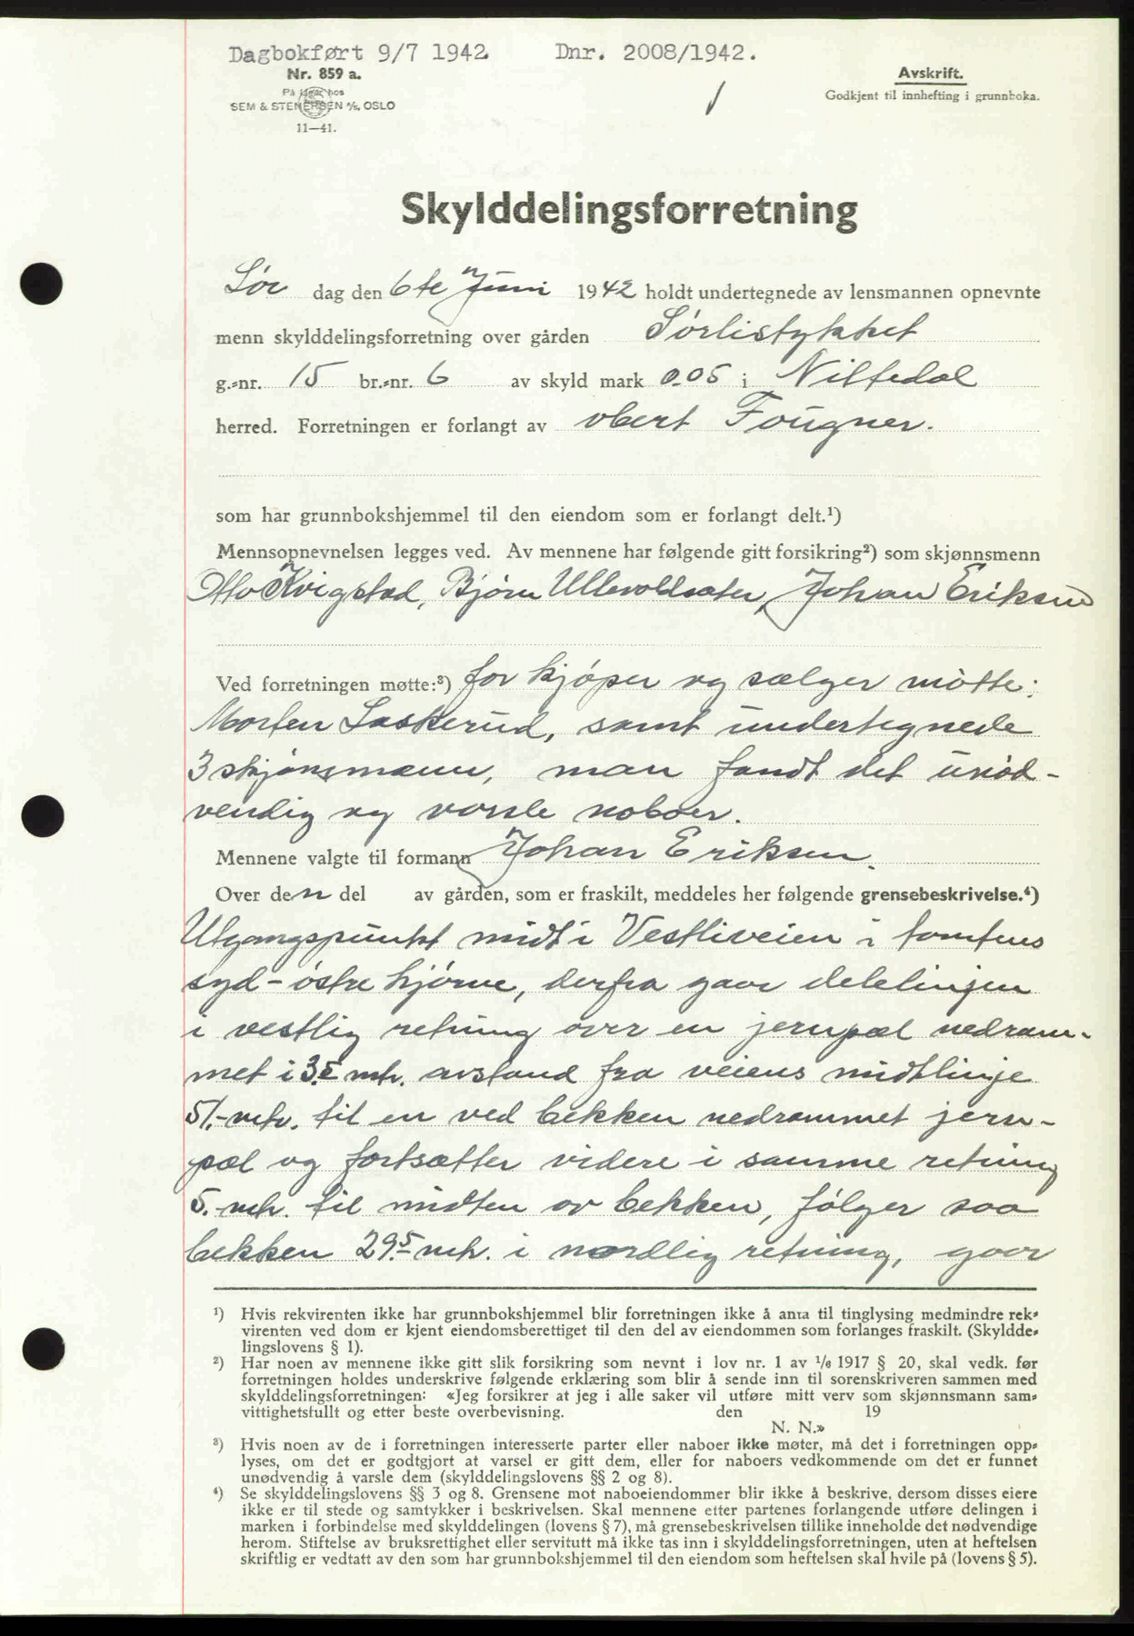 Dagbokført 9/7 1942. Dnr. 2008/1942.
Nr. 859 a.
På lager hos
SEM & STENERSEN A/S, OSLO
11—41.
Avskrift.
Godkjent til innhefting i grunnboka.
Skylddelingsforretning
Lør dag den 6te Juni 1942 holdt undertegnede av lensmannen opnevnte
menn skylddelingsforretning over gården Sørlistykket
g.-nr. 15 br.-nr. 6 av skyld mark 0.05 i Nittedal
herred. Forretningen er forlangt av Obert Fougner.
som har grunnbokshjemmel til den eiendom som er forlangt delt.¹)
Mennsopnevnelsen legges ved. Av mennene har følgende gitt forsikring²) som skjønnsmenn
Otto Kvigstad, Bjørn Ullevoldsæter, Johan Eriksen
Ved forretningen møtte:³) for kjøper og sælger møtte:
Morten Laskerud, samt undertegnede
3 skjønsmænn, man fandt det unød-
vendig og varsle naboer.
Mennene valgte til formann Johan Eriksen.
Over den del av gården, som er fraskilt, meddeles her følgende grensebeskrivelse.⁴)
Utgangspunkt midt i Vestliveien i tomtens
syd-østre hjørne, derfra gaar delelinjen
i vestlig retning over en jernpæl nedram-
met i 3.5 mtr. avstand fra veiens midtlinje
51.- mtr. til en ved bekken nedrammet jern-
pæl og fortsætter videre i samme retning
5. mtr. til midten av bekken, følger saa
bekken 29.5 mtr. i nordlig retning, gaar
¹) Hvis rekvirenten ikke har grunnbokshjemmel blir forretningen ikke å anta til tinglysing medmindre rek-
virenten ved dom er kjent eiendomsberettiget til den del av eiendommen som forlanges fraskilt. (Skyldde-
lingslovens § 1).
²) Har noen av mennene ikke gitt slik forsikring som nevnt i lov nr. 1 av 1/6 1917 § 20, skal vedk. før
forretningen holdes underskrive følgende erklæring som blir å sende inn til sorenskriveren sammen med
skylddelingsforretningen: «Jeg forsikrer at jeg i alle saker vil utføre mitt verv som skjønnsmann sam-
vittighetsfullt og etter beste overbevisning. den 19
N. N.»
³) Hvis noen av de i forretningen interesserte parter eller naboer ikke møter, må det i forretningen opp-
lyses, om det er godtgjort at varsel er gitt dem, eller for naboers vedkommende om det er funnet
unødvendig å varsle dem (skylddelingslovens §§ 2 og 8).
⁴) Se skylddelingslovens §§ 3 og 8. Grensene mot naboeiendommer blir ikke å beskrive, dersom disses eiere
ikke er til stede og samtykker i beskrivelsen. Skal mennene etter partenes forlangende utføre delingen i
marken i forbindelse med skylddelingen (lovens § 7), må grensebeskrivelsen tillike inneholde det nødvendige
herom. Stiftelse av bruksrettighet eller servitutt må ikke tas inn i skylddelingsforretningen, uten at heftelsen
skriftlig er vedtatt av den som har grunnbokshjemmel til den eiendom som heftelsen skal hvile på (lovens § 5).